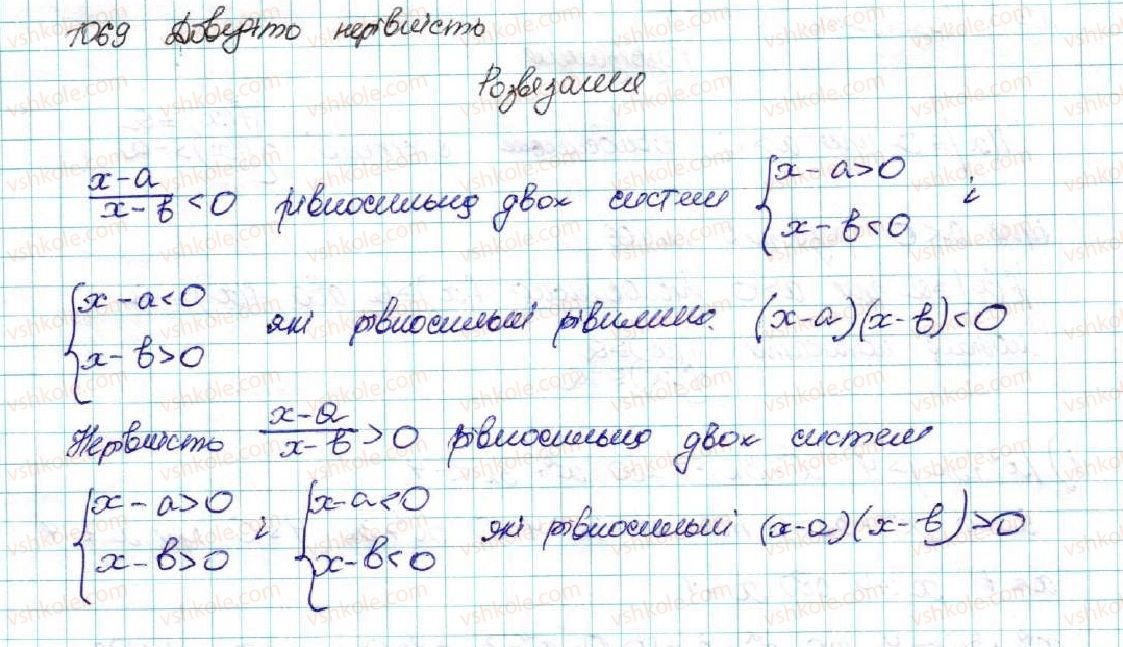 1069 Доведіть нерівність
Розвязання
x-a/x-b < 0 рівносильна двох систем {x-a>0 x-b<0 і
{x-a<0 x-b>0 які рівносильні рівнянню. (x-a)(x-b)<0
Нерівність x-a/x-b > 0 рівносильна двох систем
{x-a>0 x-b>0 і {x-a<0 x-b<0 які рівносильні (x-a)(x-b)>0
vshkole.com